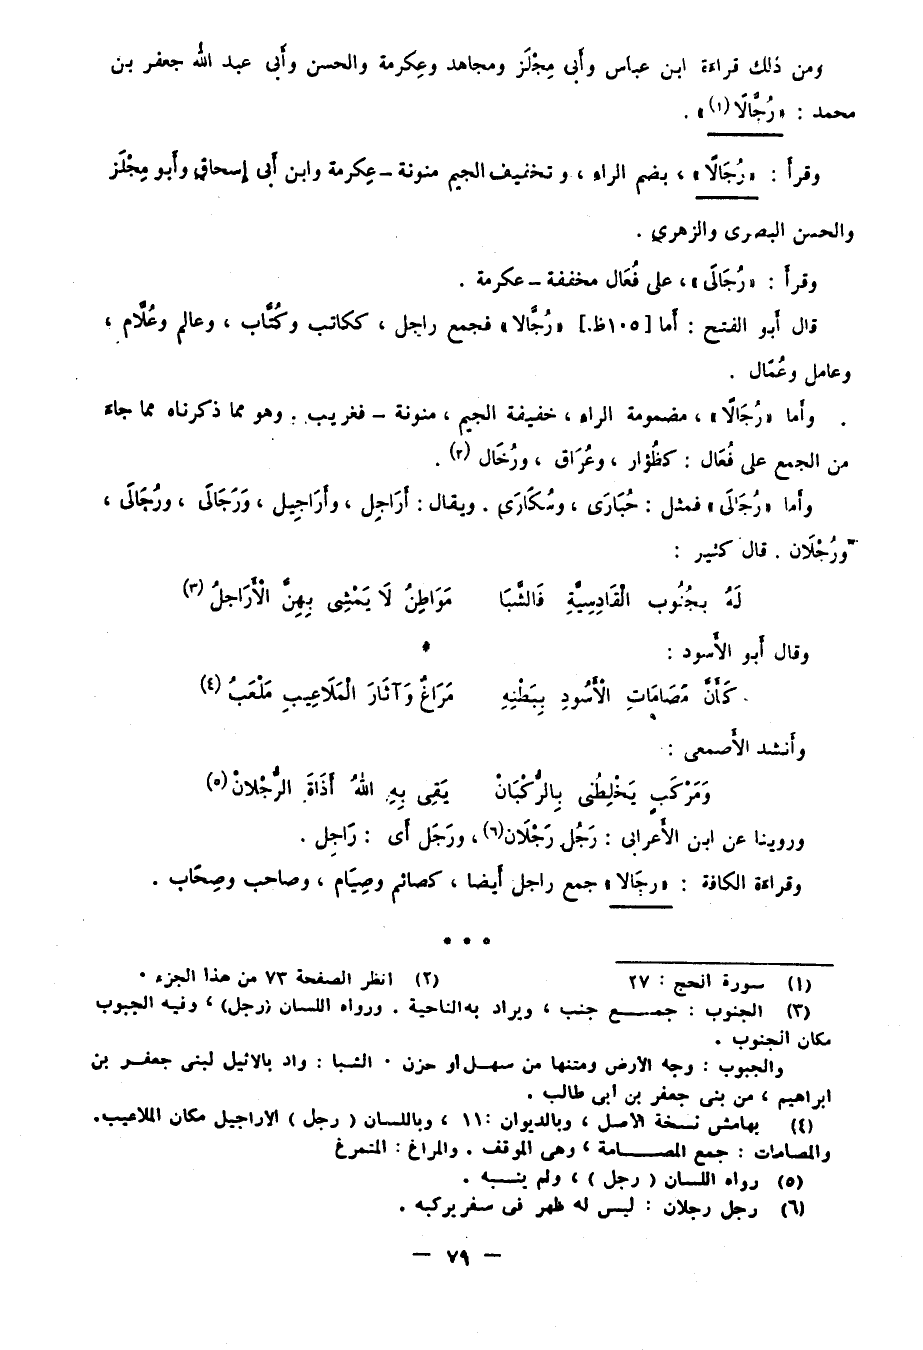 ومن ذلك قراءة ابن عباس وأبى مِجْلَز ومجاهد وعِكرمة والحسن وأبى عبد الله جعفر بن
محمد : «رُجَّالًا(١)» .
وقرأ : «رُجَالًا» ، بضم الراء ، وتخفيف الجيم منونة – عِكرمة وابن أبى إسحاق وأبو مِجْلَز
والحسن البصرى والزهري .
وقرأ : «رُجَالَى» ، على فُعَال مخففة – عكرمة .
قال أبو الفتح : أما [١٠٥ظ.] «رُجَّالا» فجمع راجل ، ككاتب وكُتَّاب ، وعالم وعُلَّام ،
وعامل وعُمّال .
وأما «رُجَالًا» ، مضمومة الراء ، خفيفة الجيم ، منونة – فغريب . وهو مما ذكرناه مما جاء
من الجمع على فُعَال : كظُؤار ، وعُرَاق ، ورُخَال (٢) .
وأما «رُجَالَى» فمثل : حُبَارَى ، وسُكَارَى . ويقال : أرَاجِل ، وأرَاجِيل ، وَرَجَالَى ، ورُجَالَى ،
ورُجْلَان . قال كثير :
لَهُ بِجُنُوب الْقَادِسِيَّةِ فَالشَّبَا مَوَاطِنُ لَا يَمْشِى بِهِنَّ الْأَرَاجِلُ (٣)
وقال أبو الأسود :
كَأَنَّ مَصَامَاتِ الْأُسُودِ بِبَطْنِهِ مَرَاغٌ وَآثَارَ الْمَلَاعِيبِ مَلْعَبُ (٤)
وأنشد الأصمعى :
وَمَرْكَبٍ يَخْلِطُنى بِالرُّكْبَانْ يَقِى بِهِ اللهُ أذَاةَ الرُّجْلانْ (٥)
وروينا عن ابن الأعرابى : رَجُل رَجْلَان(٦) ، ورَجَل أى : رَاجِل .
وقراءة الكافة : «رِجَالا» جمع راجل أيضا ، كصائم وصِيَام ، وصاحب وصِحَاب .
(١) سورة الحج : ٢٧ (٢) انظر الصفحة ٧٣ من هذا الجزء .
(٣) الجنوب : جمع جنب ، ويراد به الناحية . ورواه اللسان (رجل) ، وفيه الجبوب
مكان الجنوب .
والجبوب : وجه الأرض ومتنها من سهل أو حزن . الشبا : واد بالاثيل لبنى جعفر بن
ابراهيم ، من بنى جعفر بن ابى طالب .
(٤) بهامش نسخة الأصل ، وبالديوان : ١١ ، وباللسان ( رجل ) الاراجيل مكان الملاعيب.
والمصامات : جمع المصامة ، وهى الموقف . والمراغ : المتمرغ
(٥) رواه اللسان ( رجل ) ، ولم ينسبه .
(٦) رجل رجلان : ليس له ظهر فى سفر يركبه .
— ٧٩ —